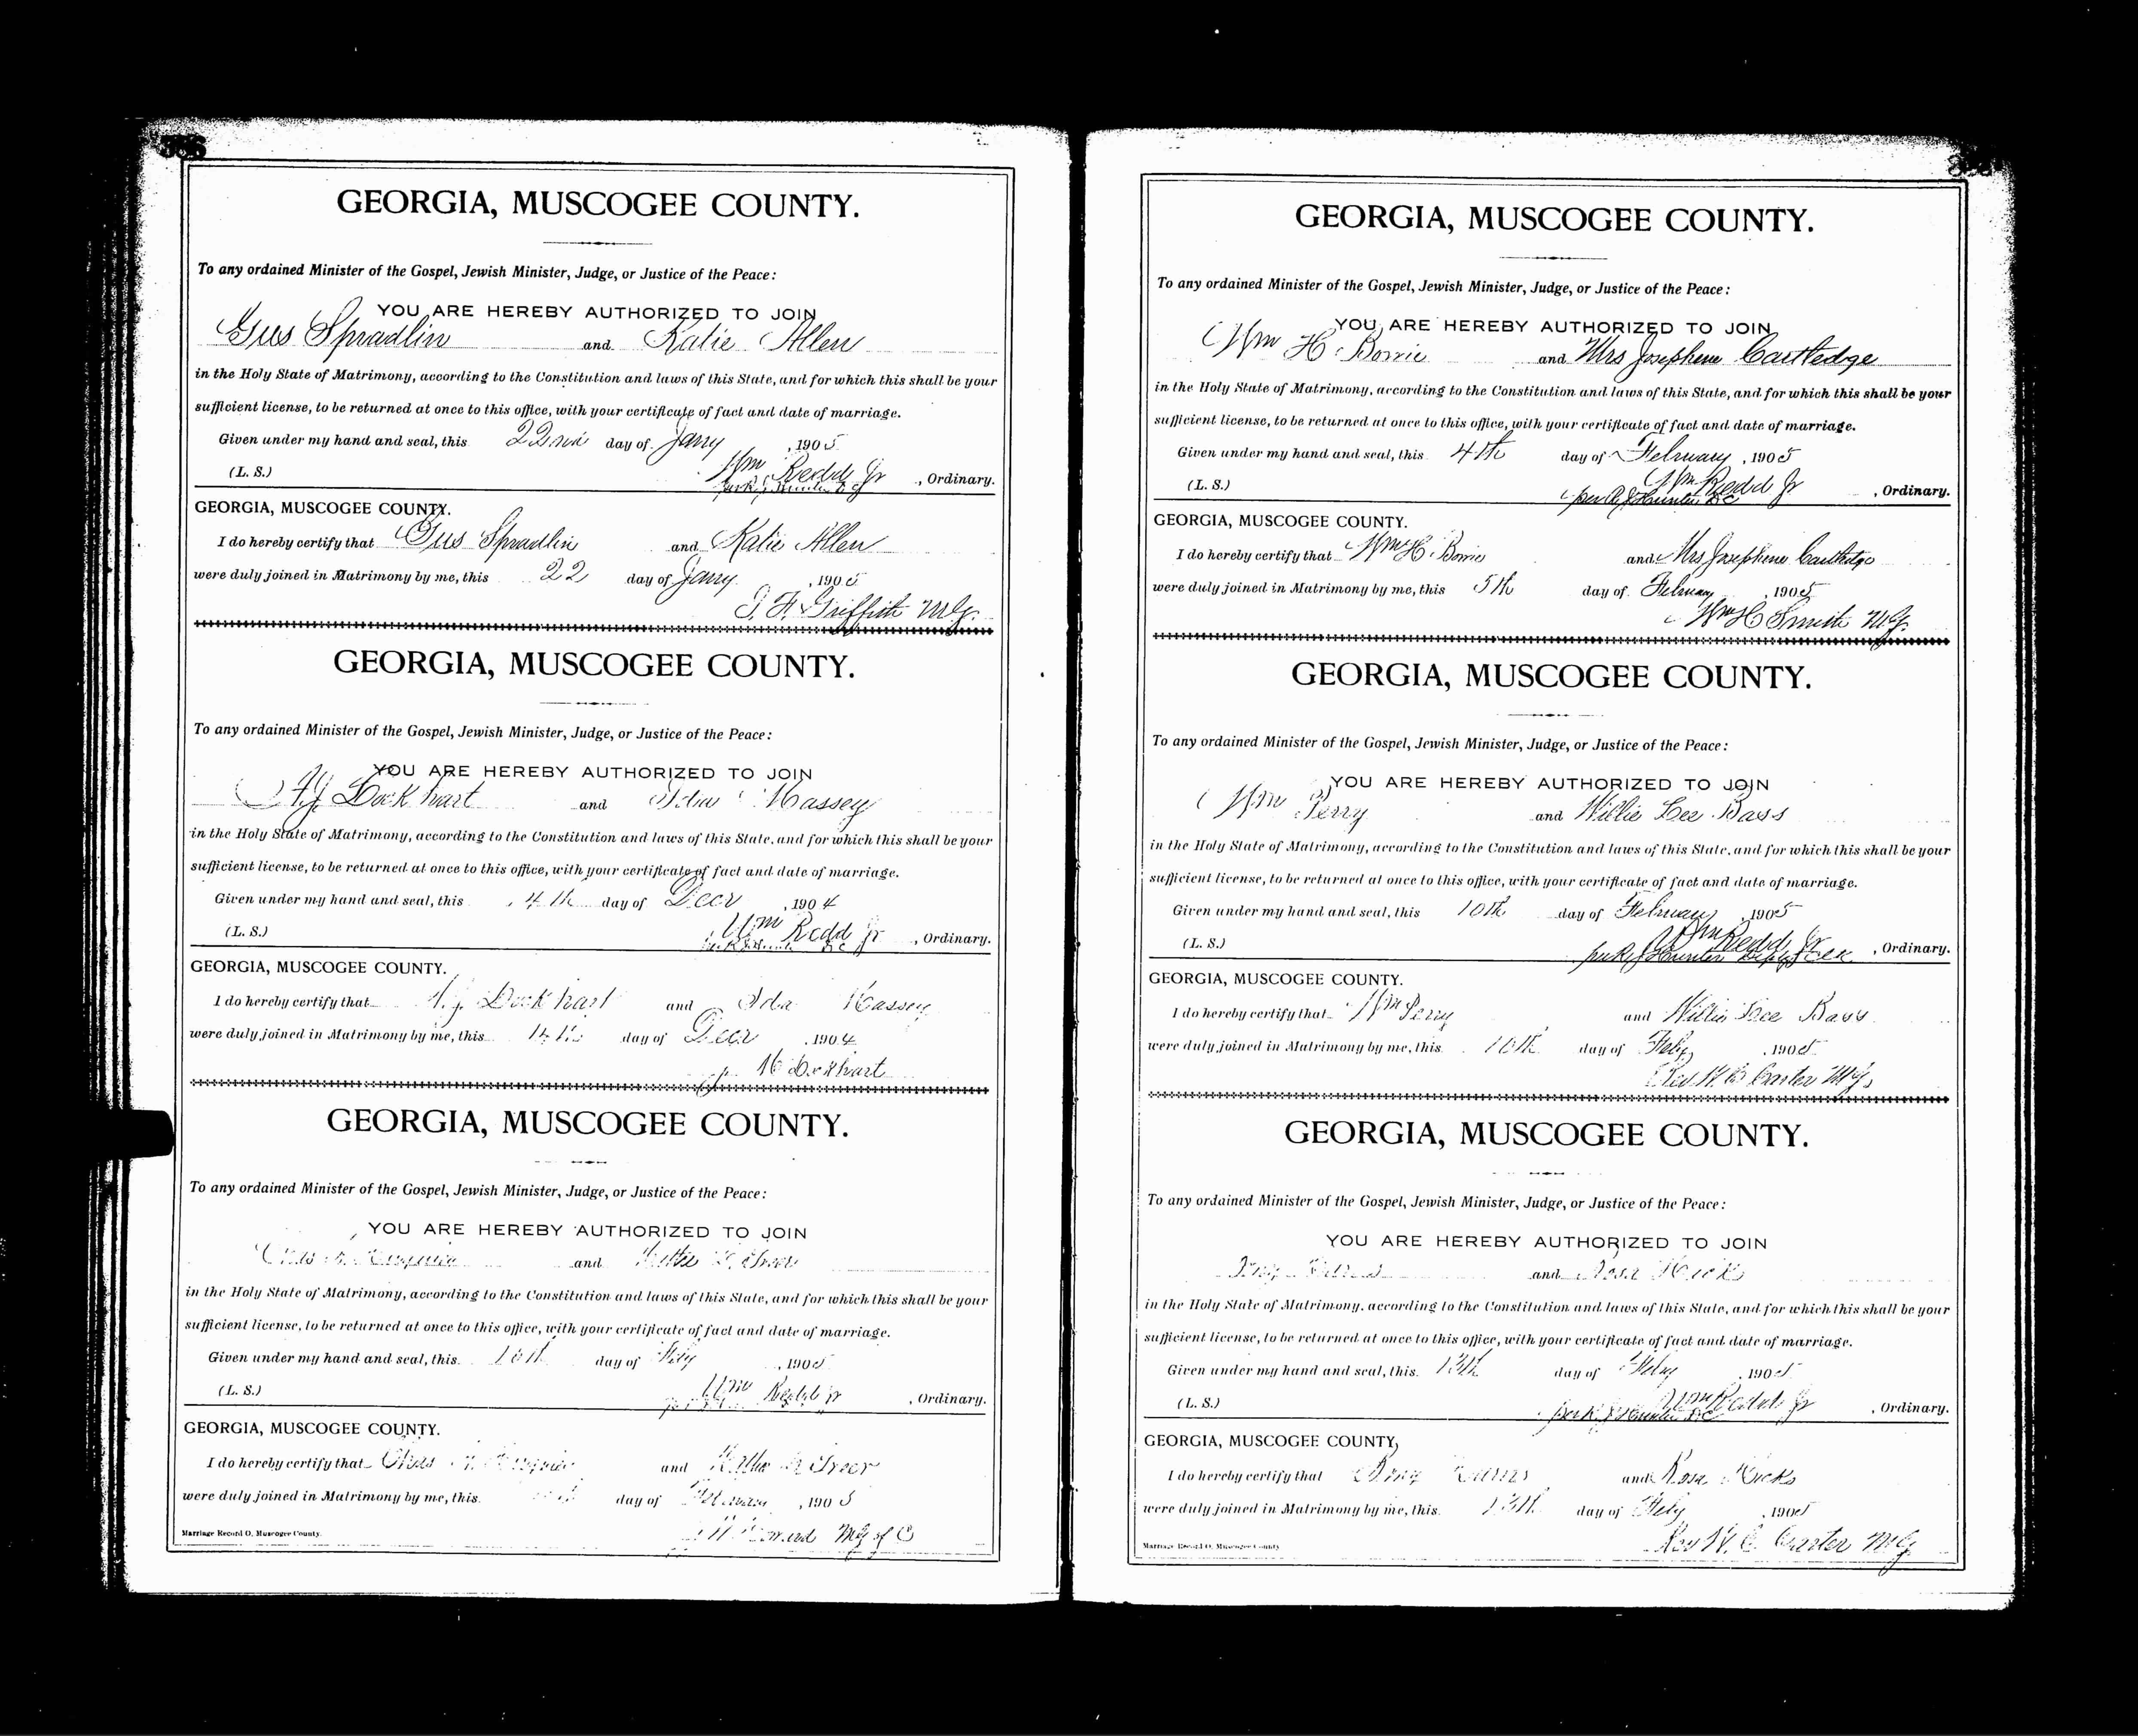 GEORGIA, MUSCOGEE COUNTY.
To any ordained Minister of the Gospel, Jewish Minister, Judge, or Justice of the Peace:
YOU ARE HEREBY AUTHORIZED TO JOIN
Gus Spradlin and Katie Allen
in the Holy State of Matrimony, according to the Constitution and laws of this State, and for which this shall be your
sufficient license, to be returned at once to this office, with your certificate of fact and date of marriage.
Given under my hand and seal, this 22nd day of Jany, 1905
(L. S.) Wm Redd Jr, Ordinary.
GEORGIA, MUSCOGEE COUNTY.
I do hereby certify that Gus Spradlin and Katie Allen
were duly joined in Matrimony by me, this 22 day of Jany, 1905
Griffith M.G.
GEORGIA, MUSCOGEE COUNTY.
To any ordained Minister of the Gospel, Jewish Minister, Judge, or Justice of the Peace:
YOU ARE HEREBY AUTHORIZED TO JOIN
Lockhart and Ida Massey
in the Holy State of Matrimony, according to the Constitution and laws of this State, and for which this shall be your
sufficient license, to be returned at once to this office, with your certificate of fact and date of marriage.
Given under my hand and seal, this 4th day of Decr, 1904
(L. S.) Wm Redd Jr, Ordinary.
GEORGIA, MUSCOGEE COUNTY.
I do hereby certify that Lockhart and Ida Massey
were duly joined in Matrimony by me, this day of Decr, 1904
Lockhart
GEORGIA, MUSCOGEE COUNTY.
To any ordained Minister of the Gospel, Jewish Minister, Judge, or Justice of the Peace:
YOU ARE HEREBY AUTHORIZED TO JOIN
and Greer
in the Holy State of Matrimony, according to the Constitution and laws of this State, and for which this shall be your
sufficient license, to be returned at once to this office, with your certificate of fact and date of marriage.
Given under my hand and seal, this day of Feby, 1905
(L. S.) Wm Redd Jr, Ordinary.
GEORGIA, MUSCOGEE COUNTY.
I do hereby certify that Chas and Greer
were duly joined in Matrimony by me, this day of February, 1905
Marriage Record O, Muscogee County.
GEORGIA, MUSCOGEE COUNTY.
To any ordained Minister of the Gospel, Jewish Minister, Judge, or Justice of the Peace:
YOU ARE HEREBY AUTHORIZED TO JOIN
Wm H Bowie and Mrs Josephine Cartledge
in the Holy State of Matrimony, according to the Constitution and laws of this State, and for which this shall be your
sufficient license, to be returned at once to this office, with your certificate of fact and date of marriage.
Given under my hand and seal, this 4th day of February, 1905
(L. S.) Wm Redd Jr, Ordinary.
GEORGIA, MUSCOGEE COUNTY.
I do hereby certify that Wm H Bowie and Mrs Josephine Cartledge
were duly joined in Matrimony by me, this 5th day of February, 1905
Wm H Smith M.G.
GEORGIA, MUSCOGEE COUNTY.
To any ordained Minister of the Gospel, Jewish Minister, Judge, or Justice of the Peace:
YOU ARE HEREBY AUTHORIZED TO JOIN
Wm Perry and Willie Lee Bass
in the Holy State of Matrimony, according to the Constitution and laws of this State, and for which this shall be your
sufficient license, to be returned at once to this office, with your certificate of fact and date of marriage.
Given under my hand and seal, this 10th day of February, 1905
(L. S.) Wm Redd Jr, Ordinary.
GEORGIA, MUSCOGEE COUNTY.
I do hereby certify that Wm Perry and Willie Lee Bass
were duly joined in Matrimony by me, this 10th day of Feby, 1905
Carter M.G.
GEORGIA, MUSCOGEE COUNTY.
To any ordained Minister of the Gospel, Jewish Minister, Judge, or Justice of the Peace:
YOU ARE HEREBY AUTHORIZED TO JOIN
and Rosa Hicks
in the Holy State of Matrimony, according to the Constitution and laws of this State, and for which this shall be your
sufficient license, to be returned at once to this office, with your certificate of fact and date of marriage.
Given under my hand and seal, this 13th day of Feby, 1905
(L. S.) Wm Redd Jr, Ordinary.
GEORGIA, MUSCOGEE COUNTY,
I do hereby certify that and Rosa Hicks
were duly joined in Matrimony by me, this 13th day of Feby, 1905
Rev W. C. Carter M.G.
Marriage Record O, Muscogee County